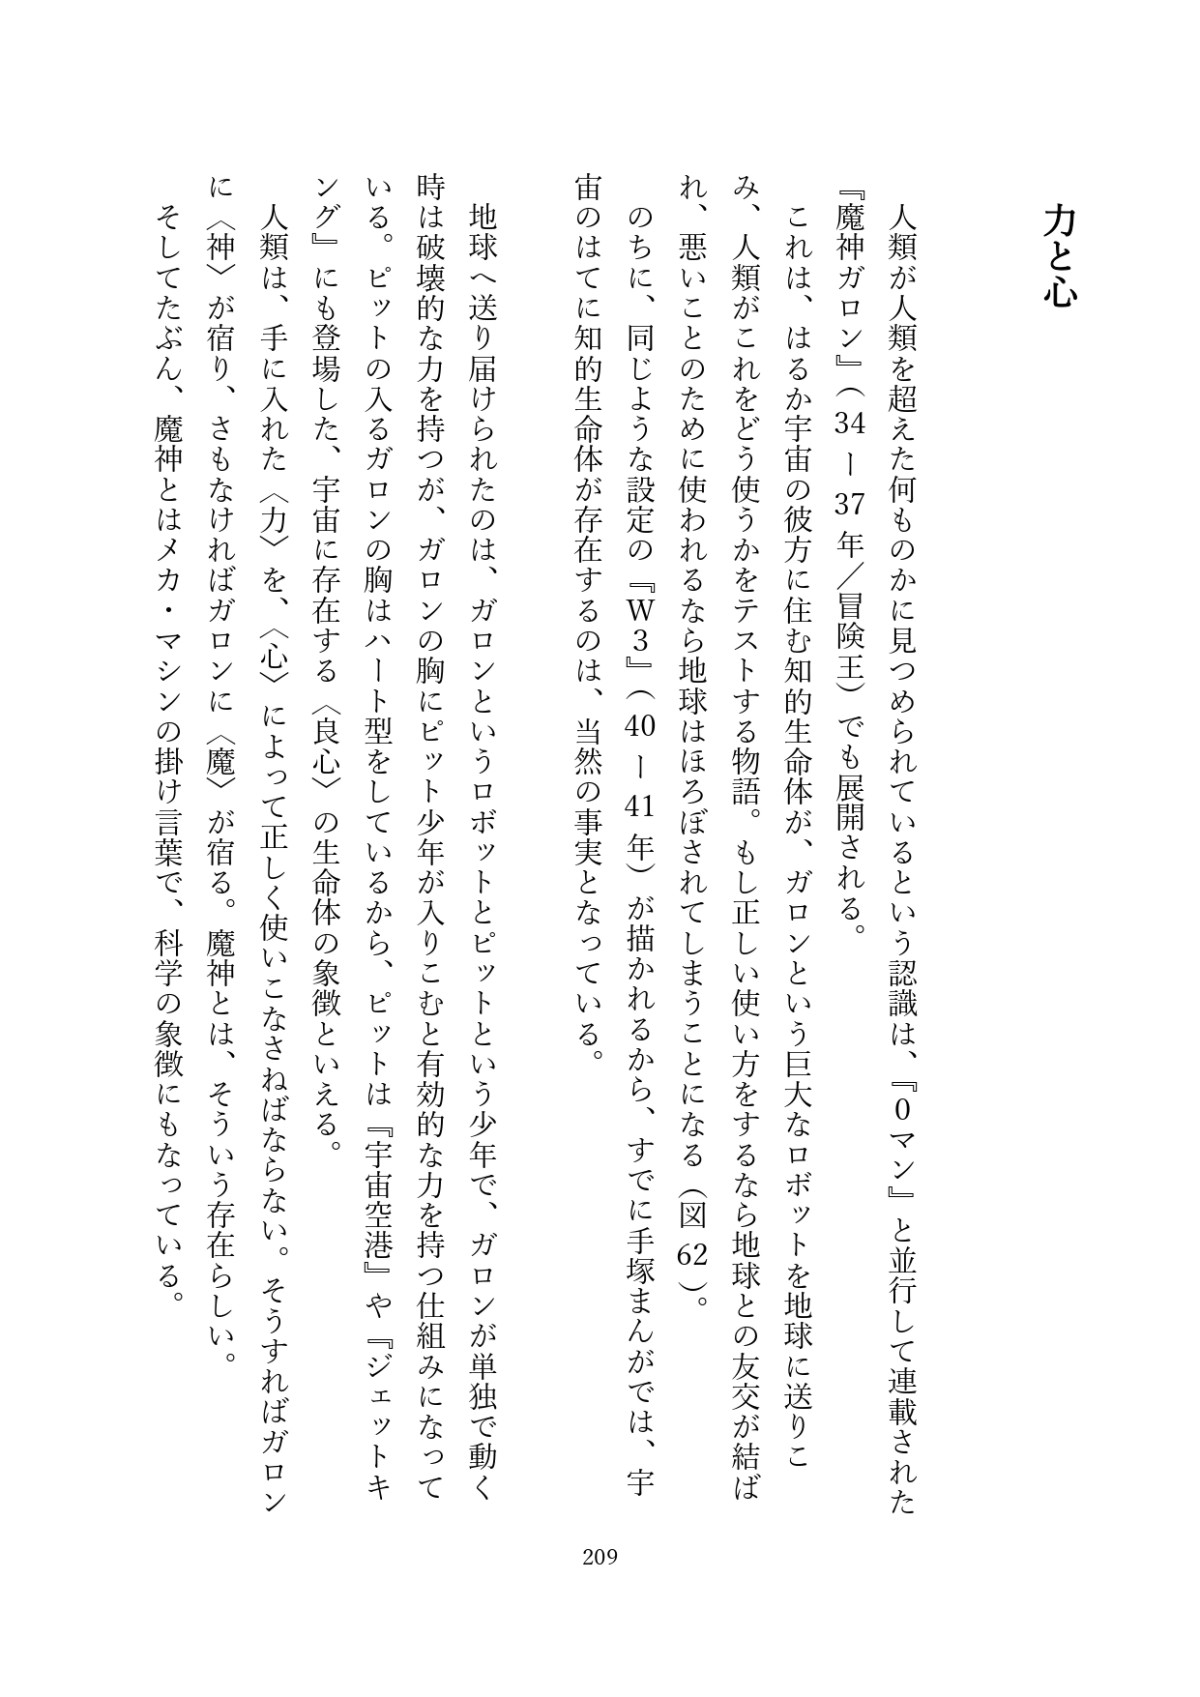 力と心
人類が人類を超えた何ものかに見つめられているという認識は、『0マン』と並行して連載された
『魔神ガロン』（34ー37年／冒険王）でも展開される。
これは、はるか宇宙の彼方に住む知的生命体が、ガロンという巨大なロボットを地球に送りこ
み、人類がこれをどう使うかをテストする物語。もし正しい使い方をするなら地球との友交が結ば
れ、悪いことのために使われるなら地球はほろぼされてしまうことになる（図62）。
のちに、同じような設定の『W3』（40ー41年）が描かれるから、すでに手塚まんがでは、宇
宙のはてに知的生命体が存在するのは、当然の事実となっている。
地球へ送り届けられたのは、ガロンというロボットとピットという少年で、ガロンが単独で動く
時は破壊的な力を持つが、ガロンの胸にピット少年が入りこむと有効的な力を持つ仕組みになって
いる。ピットの入るガロンの胸はハート型をしているから、ピットは『宇宙空港』や『ジェットキ
ング』にも登場した、宇宙に存在する〈良心〉の生命体の象徴といえる。
人類は、手に入れた〈力〉を、〈心〉によって正しく使いこなさねばならない。そうすればガロン
に〈神〉が宿り、さもなければガロンに〈魔〉が宿る。魔神とは、そういう存在らしい。
そしてたぶん、魔神とはメカ・マシンの掛け言葉で、科学の象徴にもなっている。
209